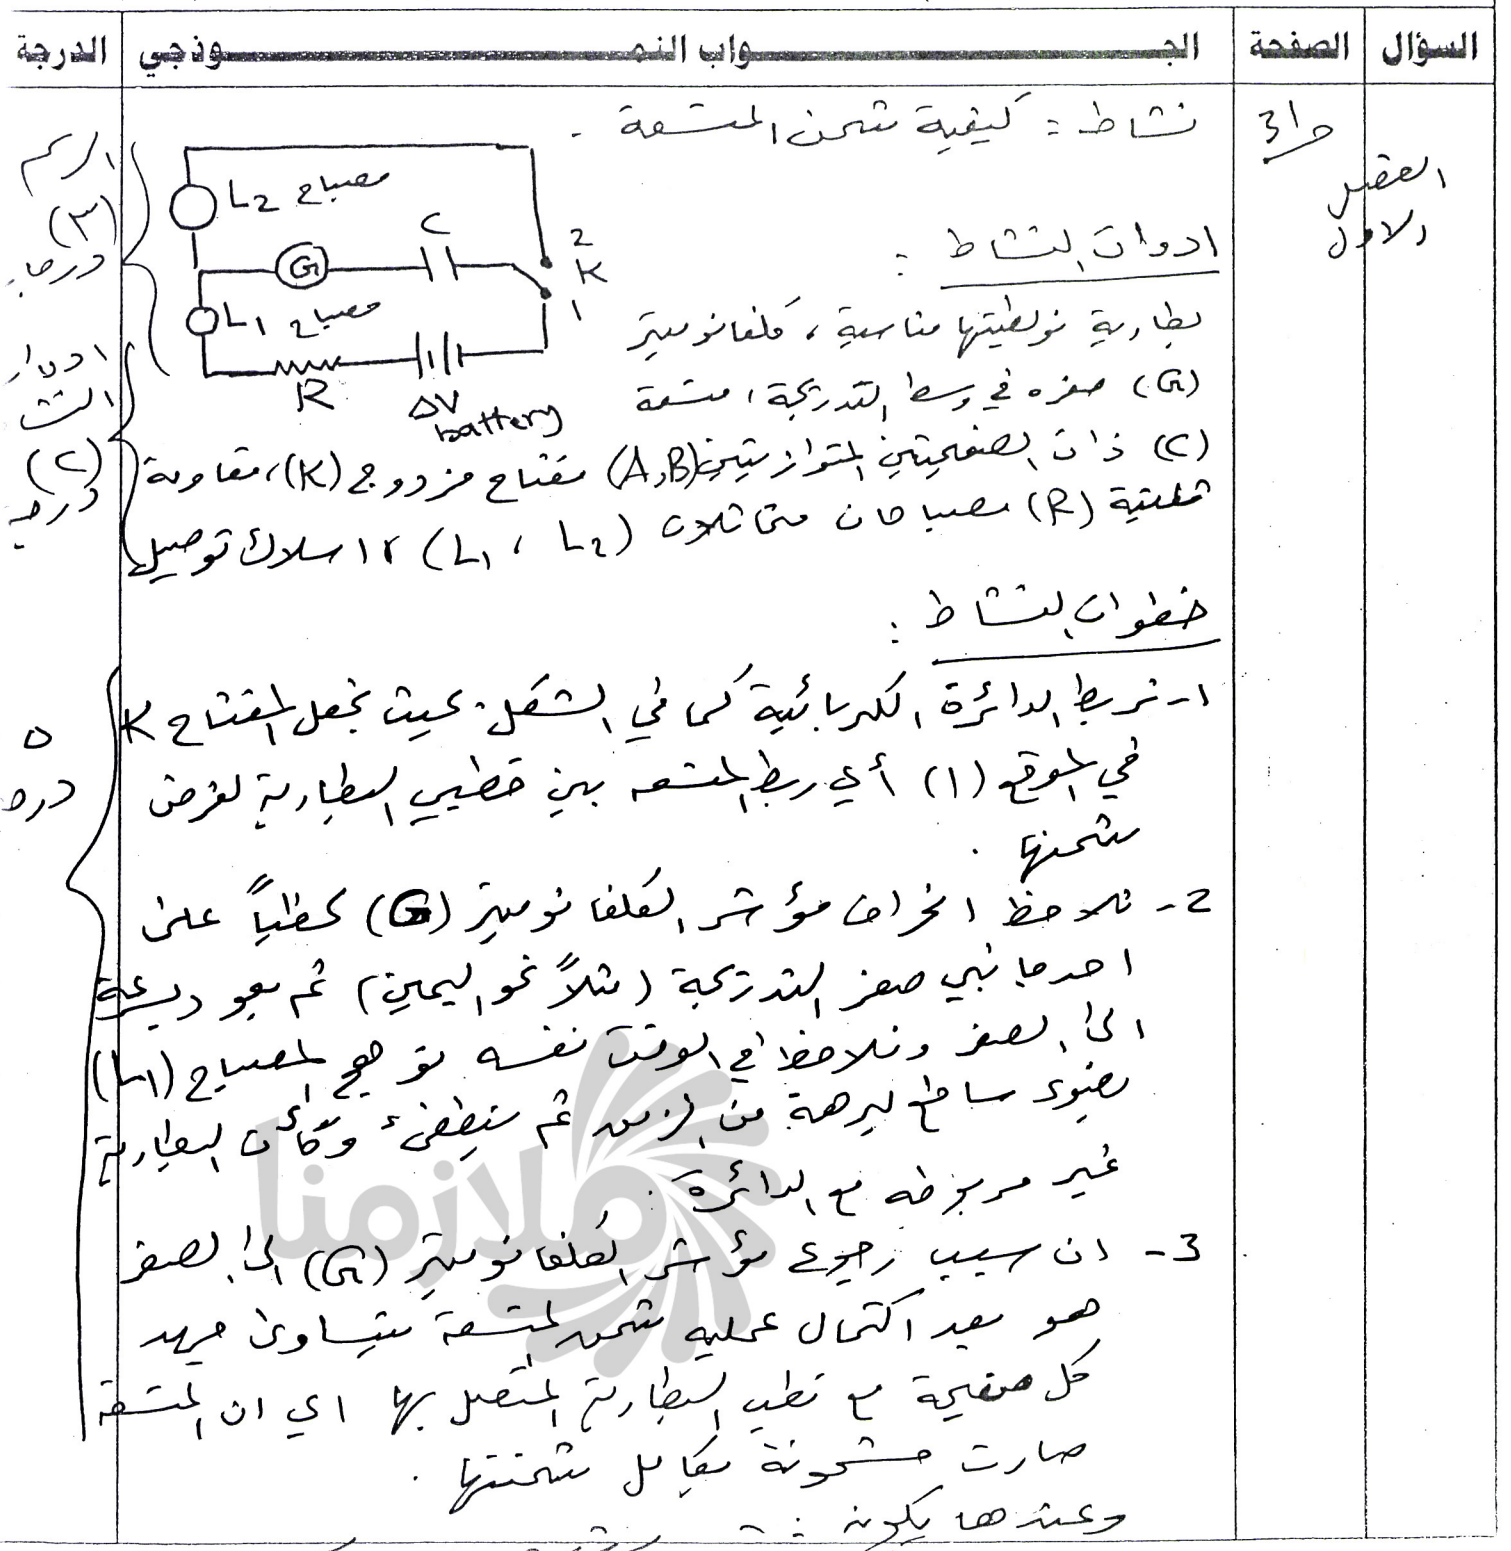 السؤال الصفحة الجـــواب النمـــوذجي الدرجة
نشاط : كيفية شحن المتسعة .
الفصل
الاول
الرسم
(٣)
L2 مصباح
C
2
K
1
G
L1 مصباح
R
ΔV
battery
ادوات النشاط :
بطارية فولطيتها مناسبة ، كلفانوميتر
(G) صفره في وسط التدريجة ، متسعة
(C) ذات الصفيحتين المتوازيتين (A,B) مفتاح مزدوج (K)، مقاومة
ثابتة (R) مصباحان متماثلان (L1 ، L2) ، اسلاك توصيل
ادوات
(٢)
خطوات النشاط :
1- نربط الدائرة الكهربائية كما في الشكل . بحيث نجعل المفتاح K
في الموقع (1) أي ربط المتسعه بين قطبي البطارية لغرض
شحنها .
٥
2- نلاحظ انحراف مؤشر الكلفانوميتر (G) لحظياً على
احد جانبي صفر التدريجة (مثلاً نحو اليمين) ثم يعود بسرعة
الى الصفر ونلاحظ في الوقت نفسه توهج المصباح (L1)
بضوء ساطع لبرهة من الزمن ثم ينطفئ وكأن البطارية
غير مربوطه مع الدائرة .
3- ان سبب رجوع مؤشر الكلفانوميتر (G) الى الصفر
هو بعد اكتمال عمليه شحن المتسعة يتساوى جهد
كل صفيحة مع قطب البطارية المتصل بها اي ان المتسعة
صارت مشحونة بكامل شحنتها .
وعندها يكون :
ملازمنا